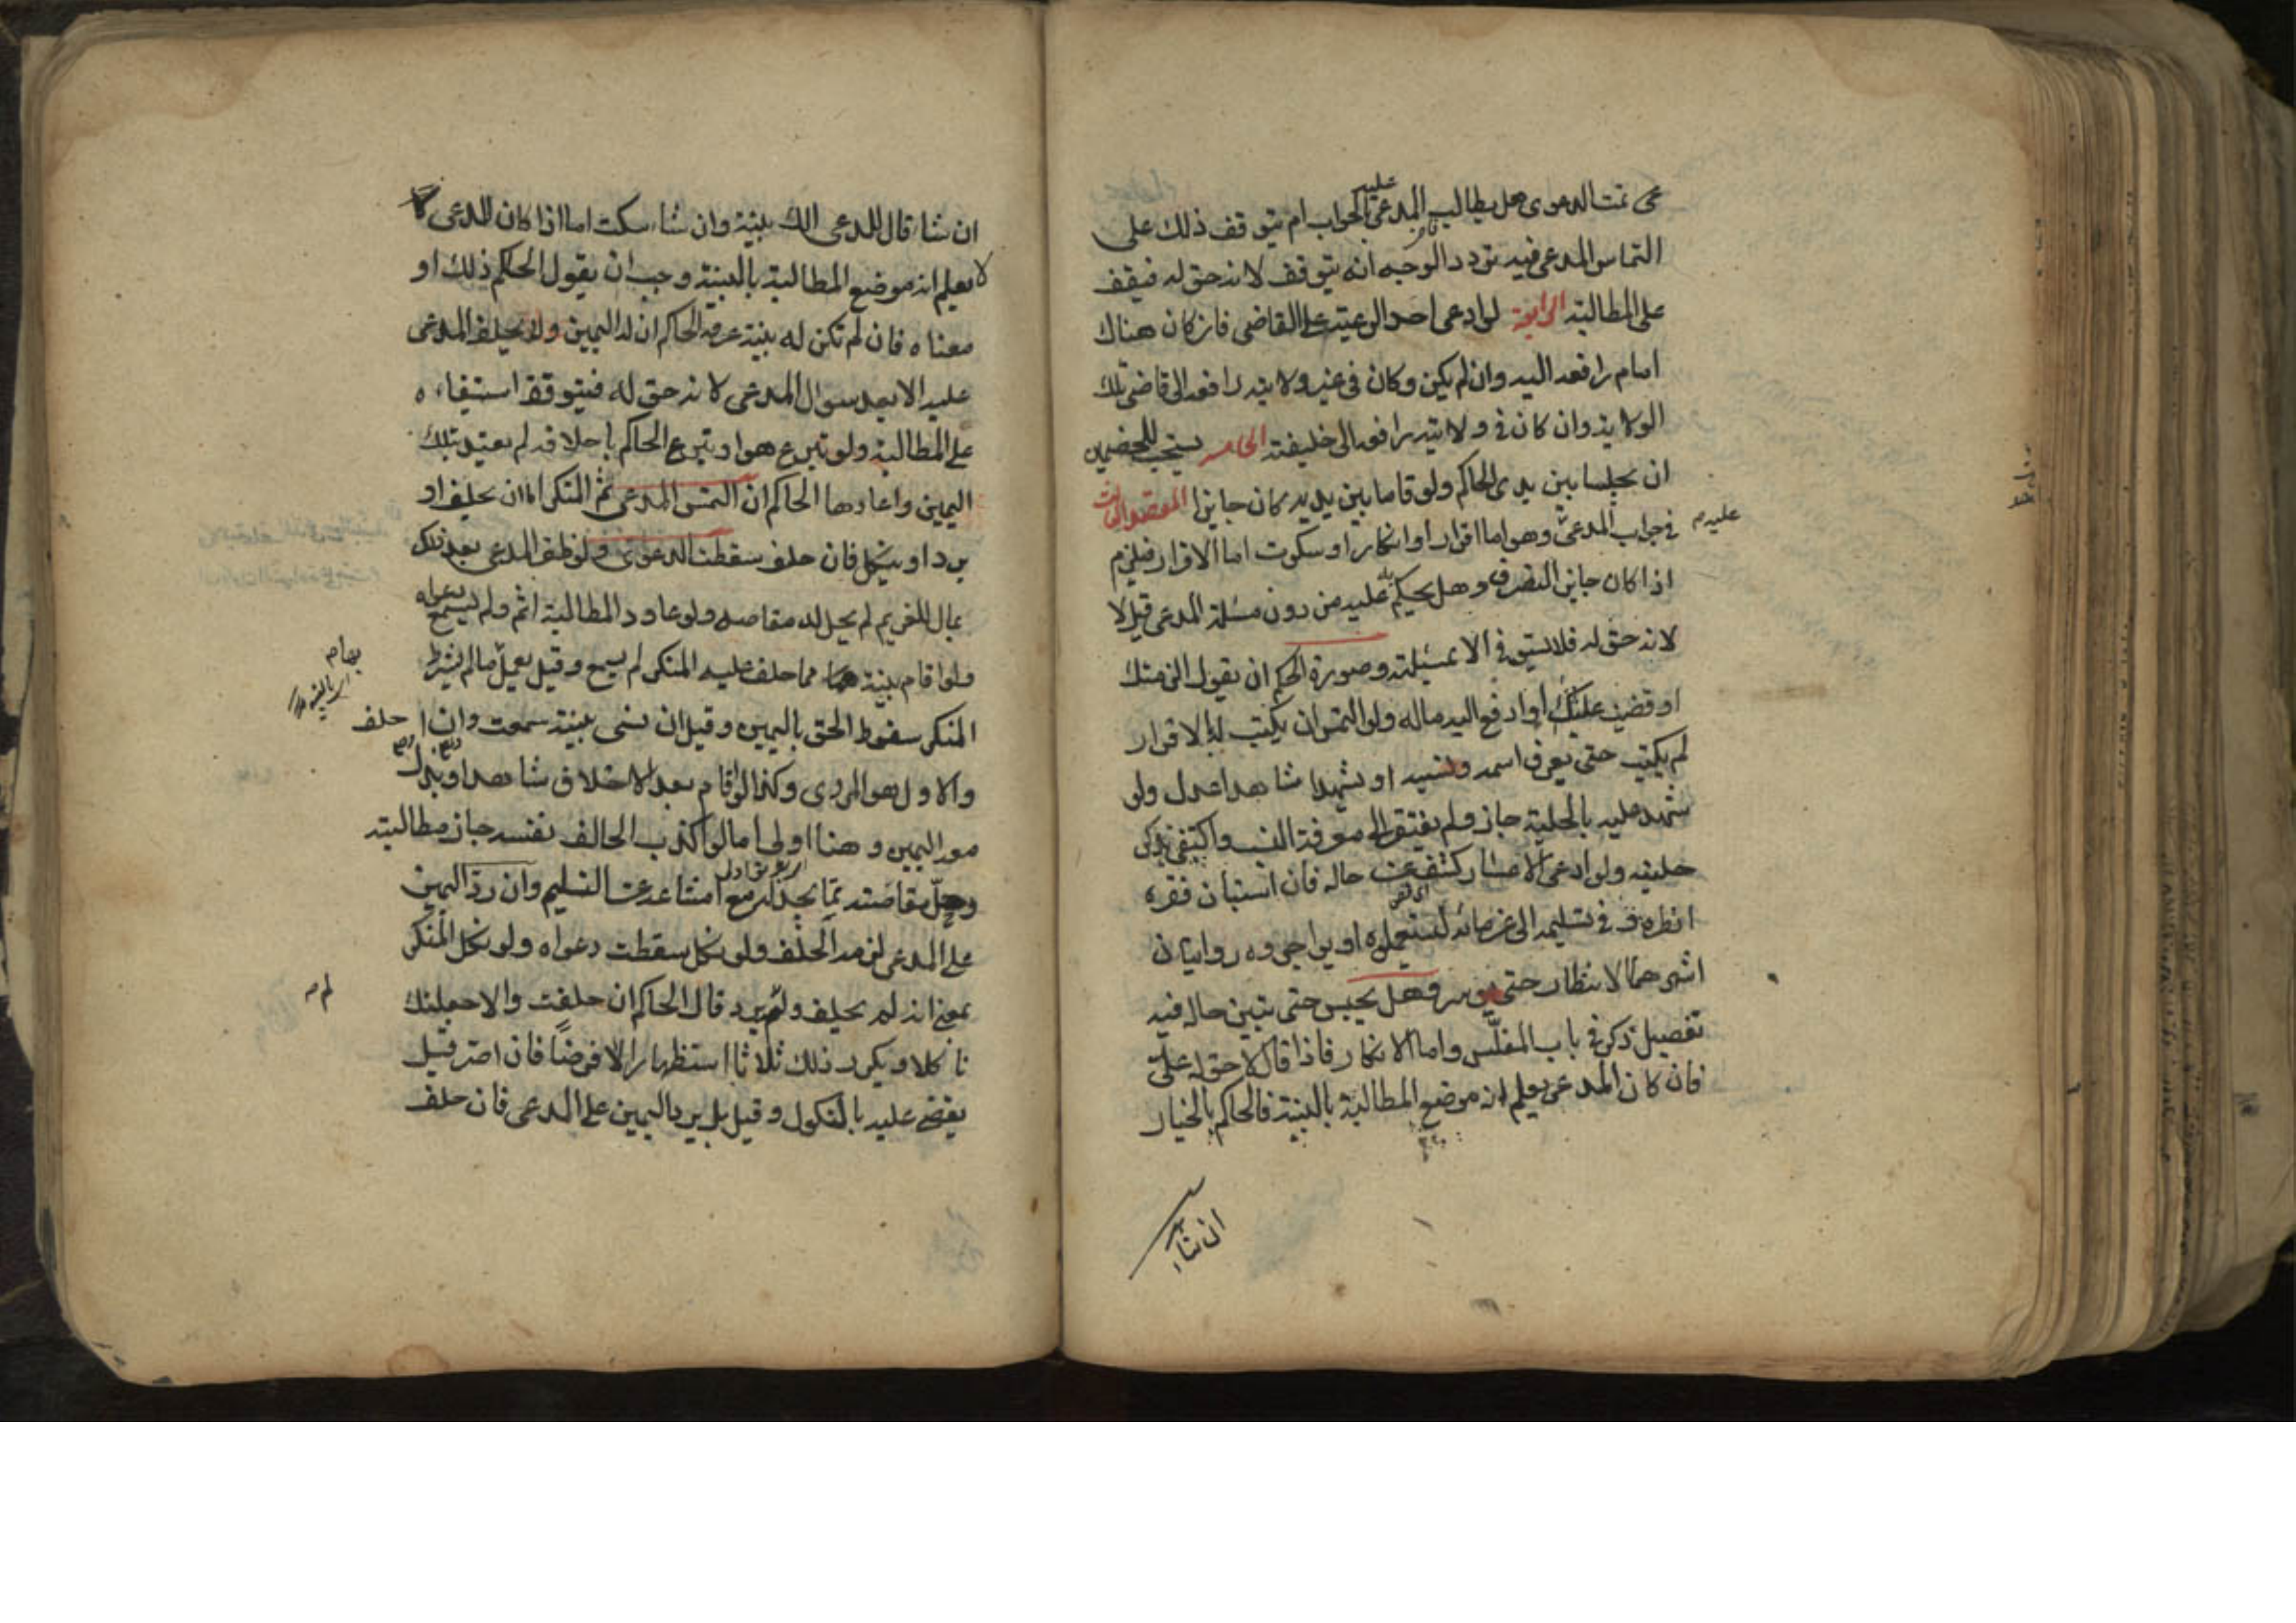 عى تمت الدعوى هل يطالب المدعى عليه بالجواب ام يتوقف ذلك على
التماس المدعى فيه تردد الوجه انه يتوقف لانه حق له فيقف
على المطالبة الرابعة لو ادعى احد الرعية على القاضى فان كان هناك
امام رافعه اليه وان لم يكن وكان فى غير ولايته رافعه الى قاضى تلك
الولاية وان كان فى ولايته رافعه الى خليفته الخامسة يستحب للخصمين
ان يجلسا بين يدى الحاكم ولو قاما بين يديه كان جايزا المقصد الثالث
فى جواب المدعى عليه وهو اما اقرار او انكار او سكوت اما الاقرار فيلزم
اذا كان جايز التصرف وهل يحكم به عليه من دون مسئلة المدعى قيل لا
لانه حق له فلا يستوفى الا بمسئلته وصورة الحكم ان يقول الزمتك
او قضيت عليك او ادفع اليه ماله ولو التمس ان يكتب له بالاقرار
لم يكتب حتى يعرف اسمه ونسبه او يشهد شاهدا عدل ولو
شهد عليه بالحلية جاز ولم يفتقر الى معرفة النسب واكتفى بذكر
حليته ولو ادعى الاعسار كشف عن حاله فان استبان فقره
انظره وفى تسليمه الى غرمائه ليستعملوه او يواجروه روايتان
اشهرهما الانظار حتى يوسر وهل يحبس حتى يتبين حاله فيه
تفصيل ذكر فى باب المفلّس واما الانكار فاذا قال لا حق له علىّ
فان كان المدعى يعلم انه موضع المطالبة بالبينة فالحاكم بالخيار
ان شاء
ان شاء قال للمدعى الك بينة وان شاء سكت اما اذا كان المدعى لا
لا يعلم انه موضع المطالبة بالبينة وجب ان يقول الحاكم ذلك او
معناه فان لم تكن له بينة عرفه الحاكم ان له اليمين ولا يحلف المدعى
عليه الا بعد سوال المدعى لانه حق له فيتوقف استيفاءه
على المطالبة ولو تبرع هو او تبرع الحاكم باحلافه لم يعتد بتلك
اليمين واعادها الحاكم ان التمس المدعى ثم المنكر اما ان يحلف او
يرد او ينكل فان حلف سقطت الدعوى ولو ظفر المدعى بعد ذلك
بمال للغريم لم يحل له مقاصه ولو عاود المطالبة اثم ولم تسمع دعواه
ولو اقام بينة مما حلف عليه المنكر لم يسمع وقيل يعمل بها ما لم يشترط
المنكر سقوط الحق باليمين وقيل ان نسى بينة سمعت وان احلف
والاول هو المروى وكذا لو اقام بعد الاحلاف شاهدا وبذل
معه اليمين وهنا اولى اما لو اكذب الحالف نفسه جاز مطالبته
وحلّ مقاصته مما يجد له مع امتناعه عن التسليم وان ردّ اليمين
على المدعى لزمه الحلف ولو نكل سقطت دعواه ولو نكل المنكر
بمعنى انه لم يحلف ولم يرد قال الحاكم ان حلفت والا جعلتك
ناكلا ويكرر ذلك ثلاثا استظهارا لا فرضا فان اصر قيل
يقضى عليه بالنكول وقيل بل يرد اليمين على المدعى فان حلف